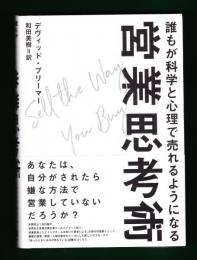 誰もが科学と心理で売れるようになる
営業思考術
デヴィッド・プリーマー
和田美樹=訳
Sell the Way
You Buy
あなたは、
自分がされたら
嫌な方法で
営業していない
だろうか?